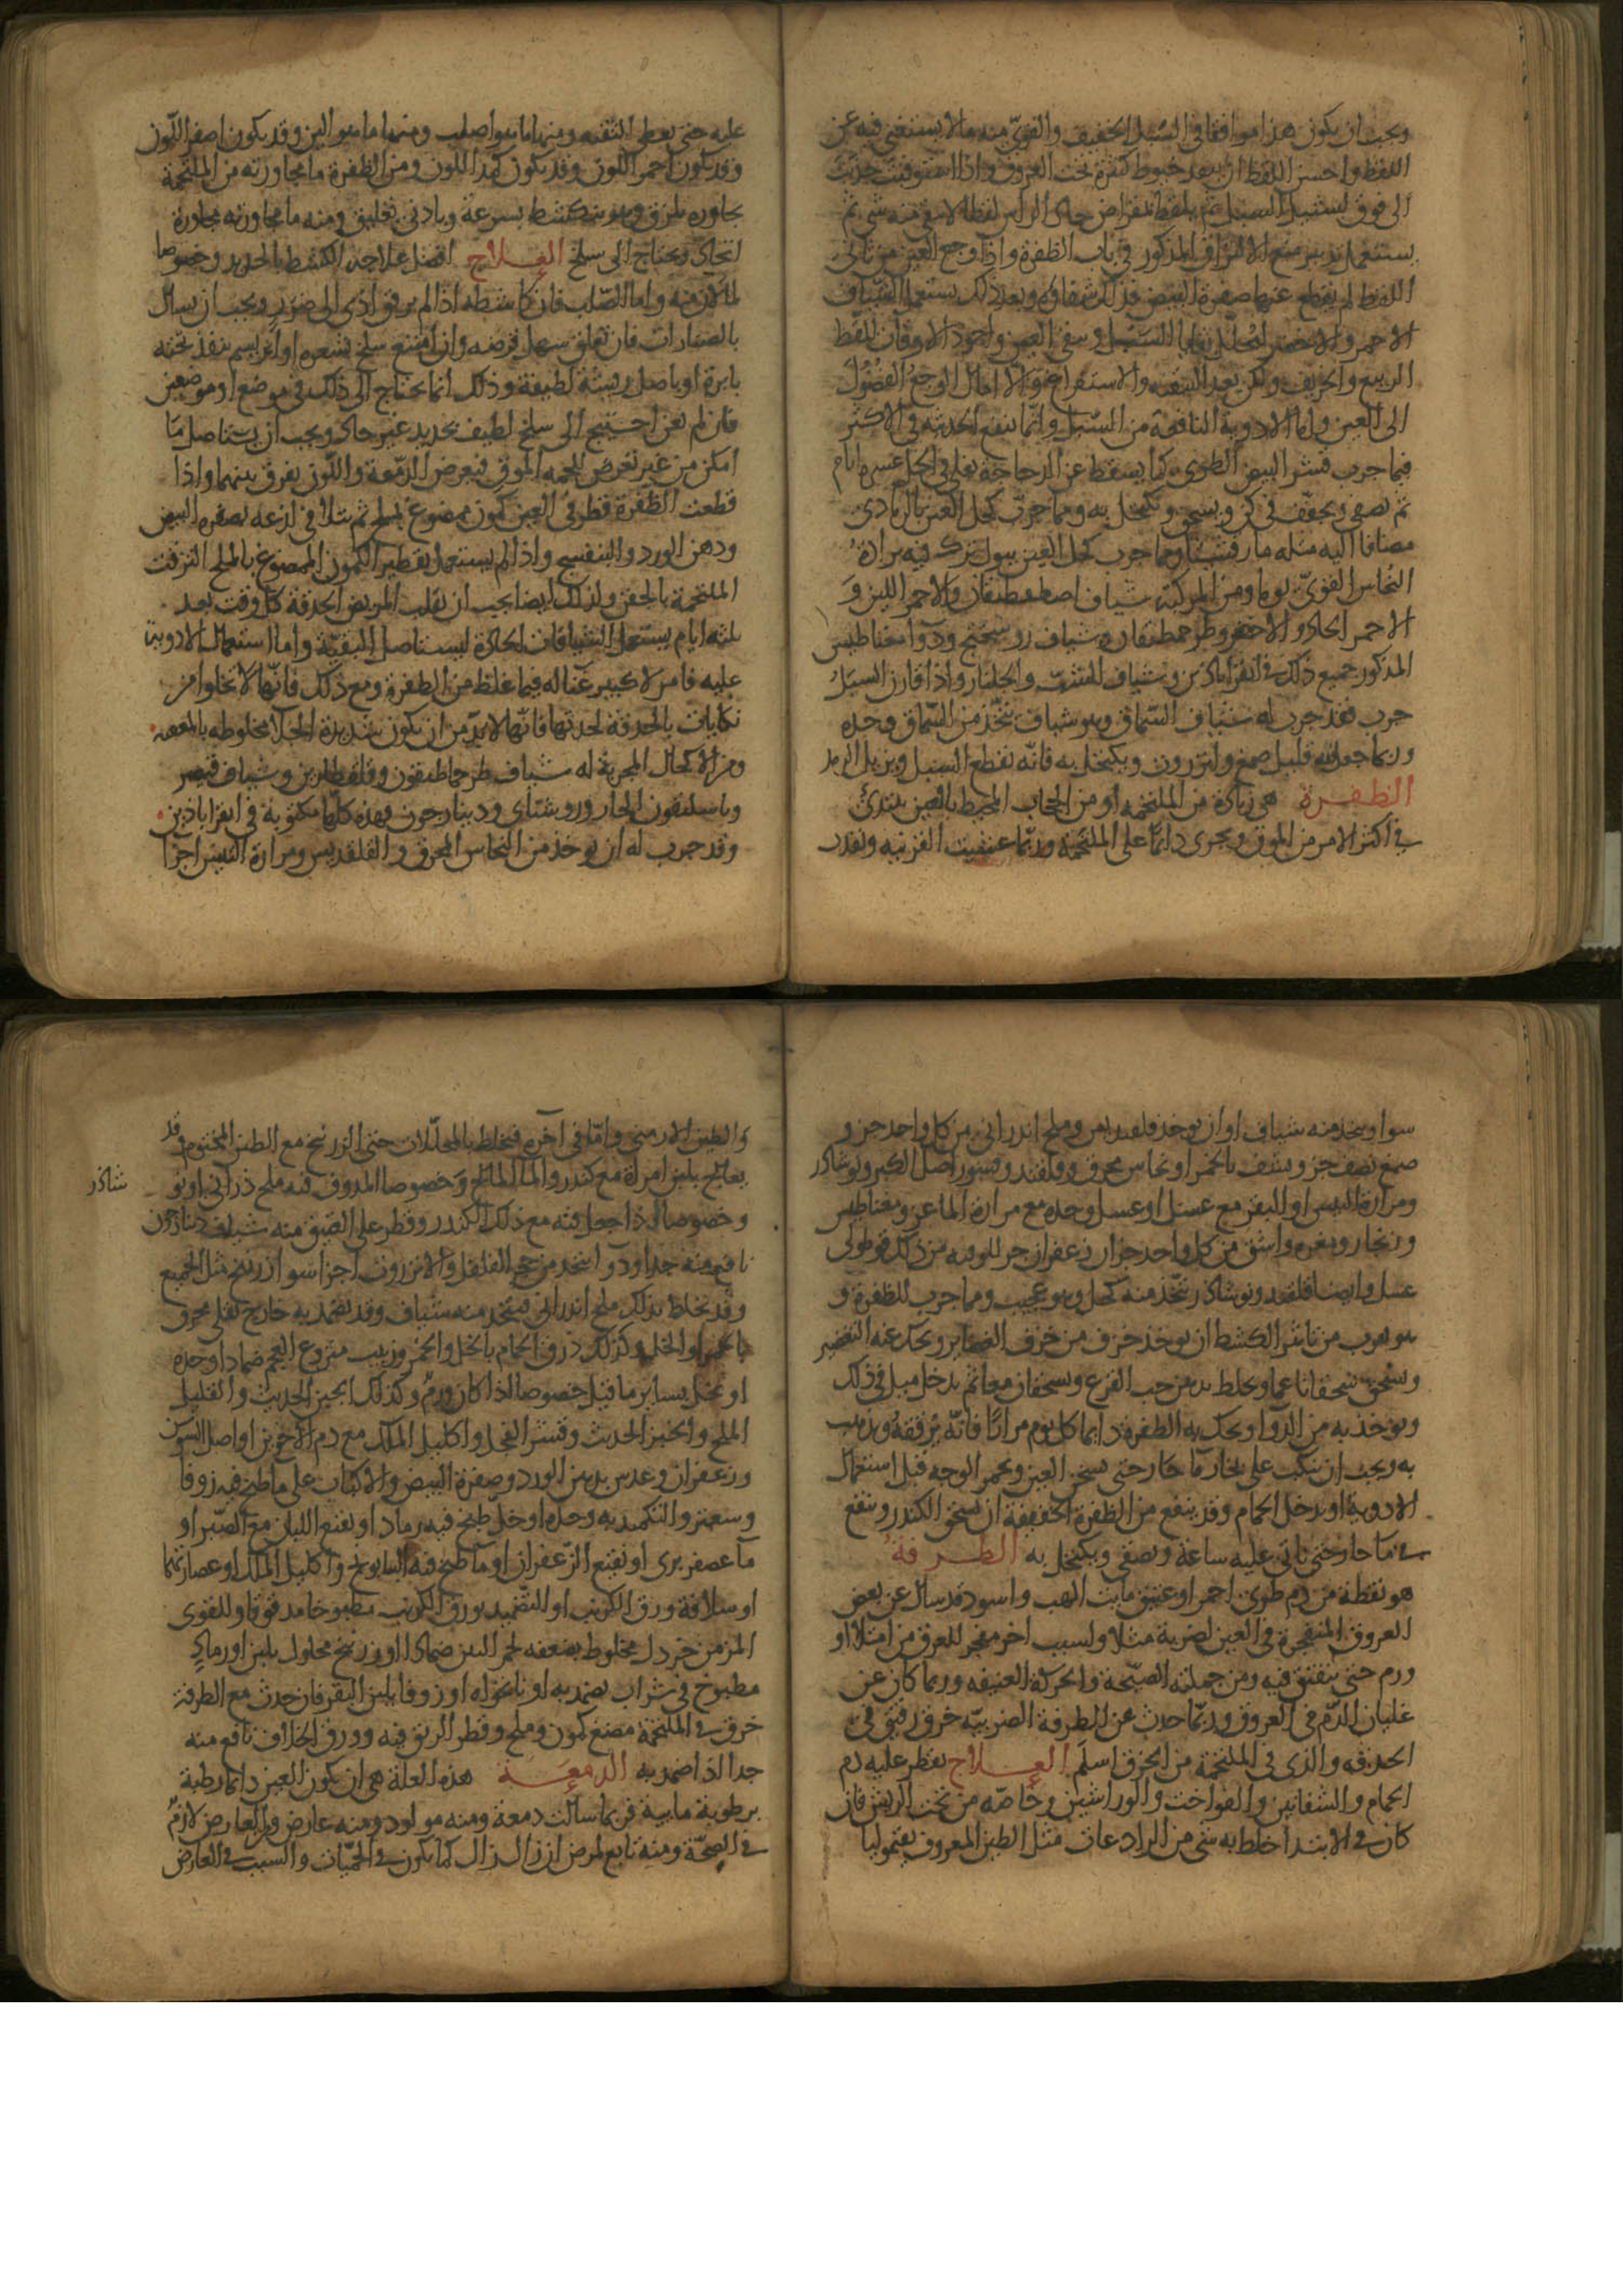 ويجب ان يكون هذا موافقا في السبل الخفيف والقوي منه ما لا يستغني فيه عن
اللقط واحسن اللقط ان ينفذ خيوط كثيرة تحت العروق واذا استوفيت جذبت
الى فوق لينشبل السبل ثم يلقط بمقراض حاد الراس لقطا لا يبقي منه شي ثم
يستعمل تدبير منع الالتزاق المذكور في باب الظفرة واذا وجع العين من تاثير
اللقط لم يقطع عنها صفرة البيض فذلك شفاوه وبعد ذلك يستعمل الشياف
الاحمر والاخضر ليحلل بقايا السبل وينقي العين واجود الاوقات للقط
الربيع والخريف ولكن بعد التنقيه والاستفراغ والا امال الوجع الفضول
الى العين واما الادوية النافعة من السبل وانما ينفع الحديثه في الاكثر
فمما جرب قشر البيض الطري كما يسقط عن الدجاجة يغلي في الخل عشره ايام
ثم يصفى ويجفف في كن ويسحق ويكتحل به ومما جرب كحل العين بالرمادي
مضافا اليه مثله مارقشيثا ومما جرب كحل العين ببول ترك فيه برادة
النحاس القوي يوما ومن المركبة شياف اصطفطيقان والاحمر اللين و
الاحمر الحاد والاخضر وطرحماطيقان وشياف روسختج ودوا مغناطيس
المذكور جميع ذلك في القراباذين وشياف الشب والجلنار واذا قارن السبل
جرب فقد جرب له شياف السماق وهو شياف يتخذ من السماق وحده
وربما جعل فيه قليل صمغ وانزروت ويكتحل به فانه يقطع السبل ويزيل الرمد
الظفرة هي زيادة من الملتحمه او من الحجاب المحيط بالعين يبتدئ
في اكثر الامر من الموق ويجري دائما على الملتحمة وربما غشيت القرنيه ونفذت
عليه حتى يغطي الثقبه ومنها ما هو اصلب ومنها ما هو الين وقد يكون اصفر اللون
وقد يكون احمر اللون وقد يكون كمد اللون ومن الظفرة ما مجاورته من الملتحمة
مجاوره ملزق وهو ينكشط بسرعة وبادنى تعليق ومنه ما مجاورته مجاورة
اتحاد ويحتاج الى سلخ العلاج افضل علاجه الكشط بالحديد وخصوصا
لما لان منه واما الصلب فان كاشطه اذا لم يرفق ادى الى ضرر ويجب ان يسال
بالصنارات فان تعلق سهل قرضه وان امتنع سلخ بشعره او ابريسم ينفذ تحته
بابرة او باصل ريشة لطيفة وذلك انما يحتاج الى ذلك في موضع او موضعين
فان لم يغن احتيج الى سلخ لطيف بحديد غير حاد ويجب ان يستاصل ما
امكن من غير تعرض للحمه الموق فيعرض الدمعة واللون يفرق بينهما واذا
قطعت الظفرة قطر في العين كمون ممضوغ بملح ثم يتلافى لذعه بصفره البيض
ودهن الورد والبنفسج واذا لم يستعمل تقطير الكمون الممضوغ بالملح التزقت
الملتحمة بالجفن ولذلك ايضا يجب ان يقلب المريض الحدقة كل وقت بعد
ثلثه ايام يستعمل الشيافات الحادة ليستاصل البقية واما استعمال الادوية
عليه فامر لا كبير غناله فيما غلظ من الظفرة ومع ذلك فانها لا تخلوا من
نكايات بالحدقة لحدتها فانها لا بد من ان يكون شديدة الجلا مخلوطه بالمعفنه
ومن الاكحال المجربة له شياف طرحماطيقون وقلقطارين وشياف قيصر
وباسليقون الحار وروشناى ودينارجون وهذه كلها مكتوبة في القراباذين
وقد جرب له ان يوخذ من النحاس المحرق والقلقديس ومرارة التيس اجزا
سوا ويتخذ منه شياف او ان يوخذ قلقديس وملح اندراني من كل واحد جزو
صمغ نصف جزو يشف بالخمر او نحاس محرق وقلقند وقشور اصل الكبر ونوشادر
ومرارة التيس او البقر مع عسل او عسل وحده مع مرارة الماعز ومغناطيس
وزنجار ومغره واشق من كل واحد جزان زعفران جز للوقيه من ذلك قوطولي
عسل وايضا قلقند ونوشادر يتخذ منه كحل وهو عجيب ومما جرب للظفرة و
هو قريب من تاثير الكشط ان يوخذ خزف من خزف الغضاير ويحك عنه التغضير
ويسحق سحقا ناعما ويخلط بدهن حب القرع ويسحقان معا ثم يدخل ميل في ذلك
ويوخذ به من الدوا ويحك به الظفرة دايما كل يوم مرارا فانه يرققه ويذهب
به ويجب ان ينكب على بخار ما حار حتى يسخن العين ويحمر الوجه قبل استعمال
الادوية او يدخل الحمام وقد ينفع من الظفرة الخفيفة ان يسحق الكندر وينقع
في ما حار حتى ياتي عليه ساعة ويصفى ويكتحل به الطرفة
هو نقطة من دم طري احمر او عتيق مايت اكهب واسود قد سال عن بعض
العروق المنفجرة في العين لضربة مثلا ولسبب اخر مفجر للعروق من امتلا او
ورم حتى ينفتق فيه ومن جملته الصيحة والحركة العنيفه وربما كان عن
غليان الدم في العروق وربما حدث عن الطرفة الضربيه خرق رفيق في
الحدقه والذي في الملتحمة من الخرق اسلم العلاج يقطر عليه دم
الحمام والشفانين والفواخت والوراشين وخاصه من تحت الريش فان
كان في الابتدا خلط به شي من الرادعات مثل الطين المعروف بقيموليا
والطين الارمني واما في اخره فيخلط بالمحللات حتى الزرنيخ مع الطين المختوم وقد
يعالج بلبن امراة مع كندر والما المالح وخصوصا المدوف فيه ملح ذراني او نو
شادر
وخصوصا اذا جعل فيه مع ذلك الكندر وقطر على العين منه شياف دينارجون
نافع منه جدا ودوا يتخذ من حجر الفلفل والانزروت اجزا سوا زرنيخ مثل الجميع
وقد يخلط بذلك ملح اندراني فيتخذ منه شياف وقد يضمد به خارج بقلي محرق
بالخمر او الخل وكذلك ذرق الحمام بالخل والخمر وزبيب منزوع العجم ضمادا وحده
او بخل بساير ما قيل خصوصا اذا كان ورم وكذلك الجبن الحديث والقليل
الملح والخبز الحديث وقشر الفجل واكليل الملك مع دم الاخوين او اصل السوسن
وزعفران وعدس بدهن الورد وصفرة البيض والاكباب على ما طبخ فيه زوفا
وسعتر والتكميد به وحده او خل طبخ فيه رماد او نقيع اللبان مع الصبر او
ما عصفر بري او نقيع الزعفران او ما طبخ فيه البابونج واكليل الملك او عصارتهما
او سلاقة ورق الكرنب او التضميد بورق الكرنب مطبوخا مدقوقا وللقوي
المزمن خردل مخلوط بضعفه لحم التين ضمادا او زرنيخ محلول بلبن او رماد
مطبوخ في شراب يضمد به او نانخواه او زوفا بلبن البقر فان حدث مع الطرفة
خرق في الملتحمة مضغ كمون وملح وقطر الريق فيه وورق الخلاف نافع منه
جدا اذا ضمد به الدمعة هذه العلة هي ان يكون العين دائما رطبة
برطوبة مايية فربما سالت دمعة ومنه مولود ومنه عارض والعارض لازم
في الصحة ومنه تابع لمرض ان زال زال كما يكون في الحميات والسبب في العارض